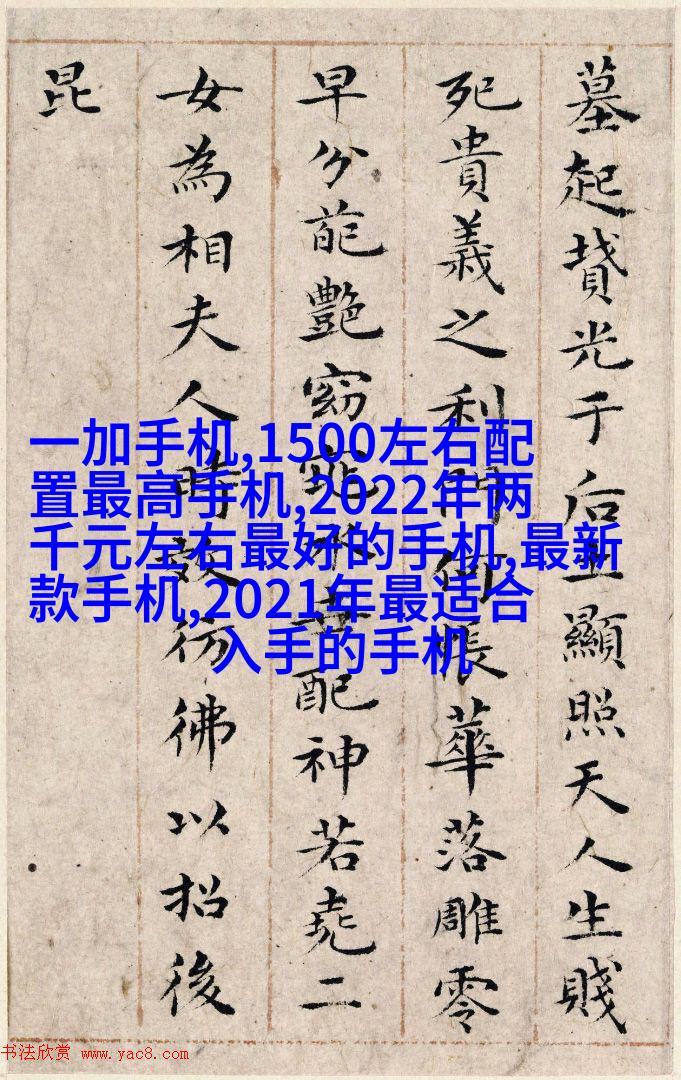 墓起墳光于后土顯照天人生賤
死貴義之利門何悵華落雕零
早分葩艷窈窕永世配神若堯二
女為相夫人時效彷彿以招後
昆
一加手机,1500左右配
置最高手机,2022年两
千元左右最好的手机,最新
款手机,2021年最适合
入手的手机
书法欣赏 www.yac8.com